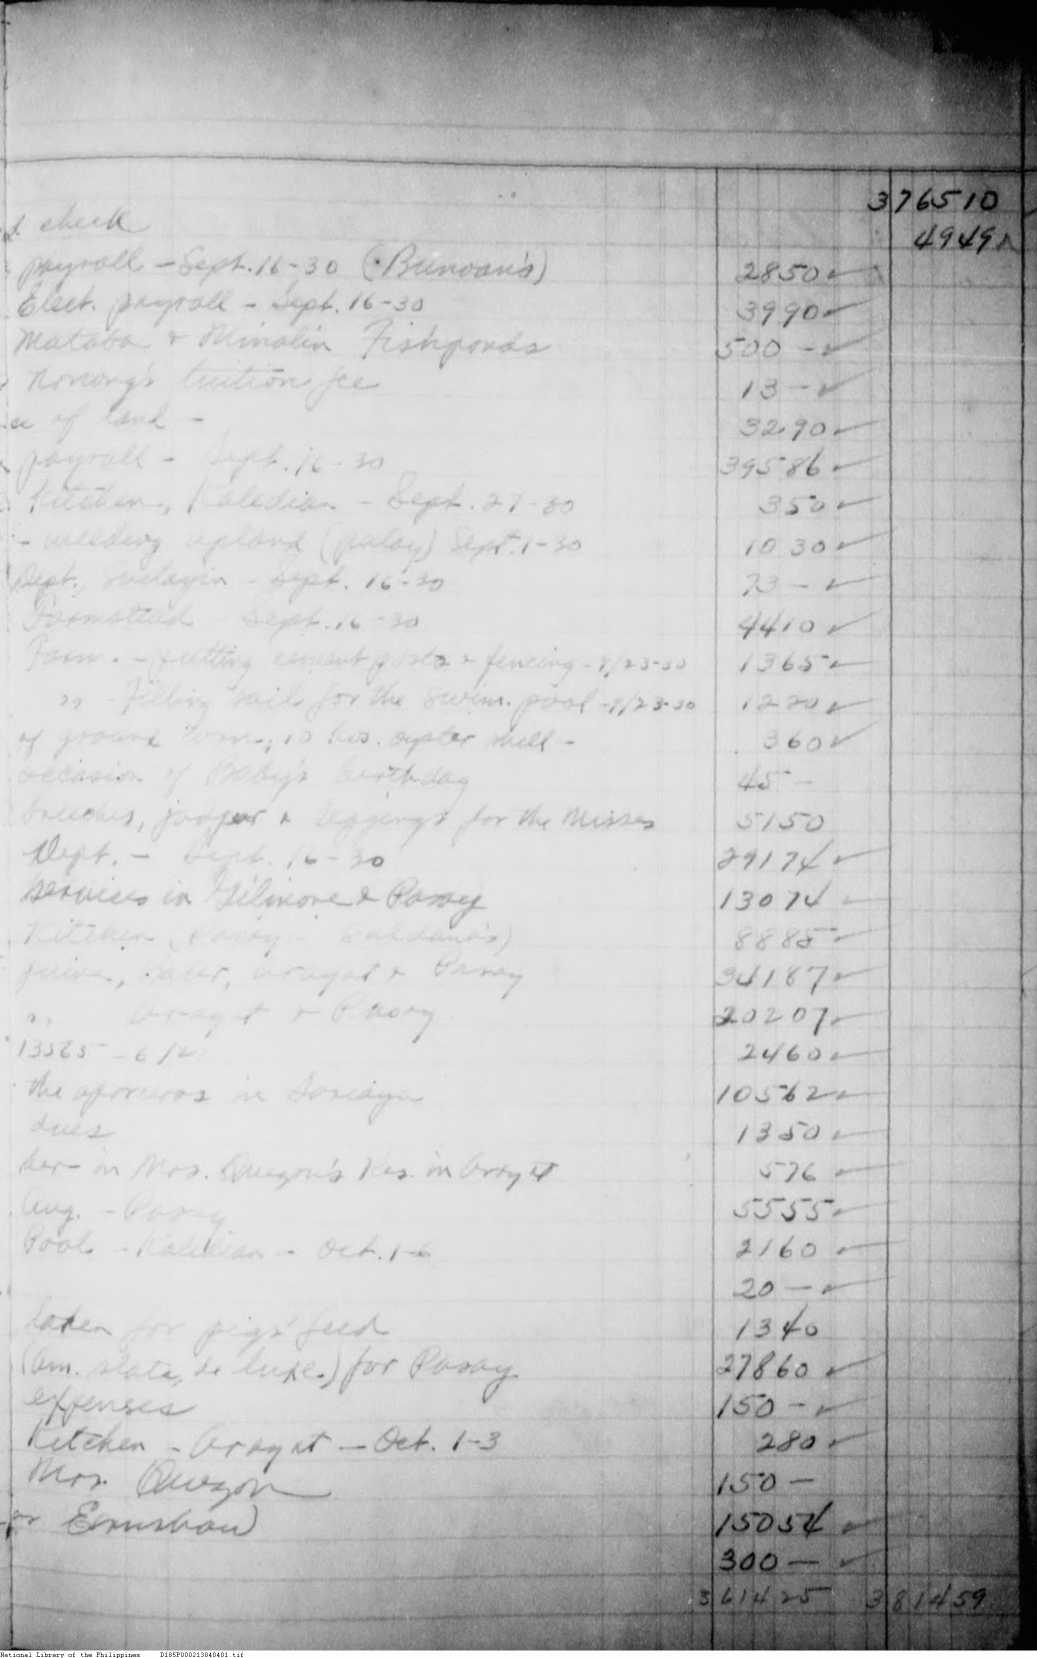 376510
check 4949
payroll - Sept. 16-30 (Bunoan's) 2850
Elect. payroll - Sept. 16-30 3990
Mataba & Minalin Fishponds 500 -
Nonong's tuition fee 13 -
of land - 3290
payroll - Sept. 16-30 39586
Kitchen, Kaledian - Sept. 27-30 350
- weeding upland (palay) Sept. 1-30 1030
Dept., - Sept. 16-30 73 -
Farmstead Sept. 16-30 4410
Farm. - putting cement posts & fencing - 9/23-30 1365
" - Filling soil for the swim. pool - 9/23-30 1220
of ground corn, 10 kos. oyster shell - 360
occasion of Baby's birthday 45 -
breeches, & leggings for the Misses 5150
Dept. - Sept. 16-30 29174
services in Gilmore & Pasay 13074
Kitchen (Pasay - ) 8885
Arayat & Pasay 34187
" Arayat & Pasay 20207
13565 - 6/2 2460
the aparceros in 10562
dues 1350
in Mrs. Quezon's Res. in Arayat 576
Aug. - Pasay 5555
Pool - Kaledian - Oct. 1-6 2160
20 -
taken for pigs' feed 1340
(Am. slate, de luxe.) for Pasay 27860
expenses 150 -
Kitchen - Arayat - Oct. 1-3 280
Mrs. Quezon 150 -
Earnshaw) 15054
300 -
361425 381459
National Library of the Philippines D185P000213040401.tif